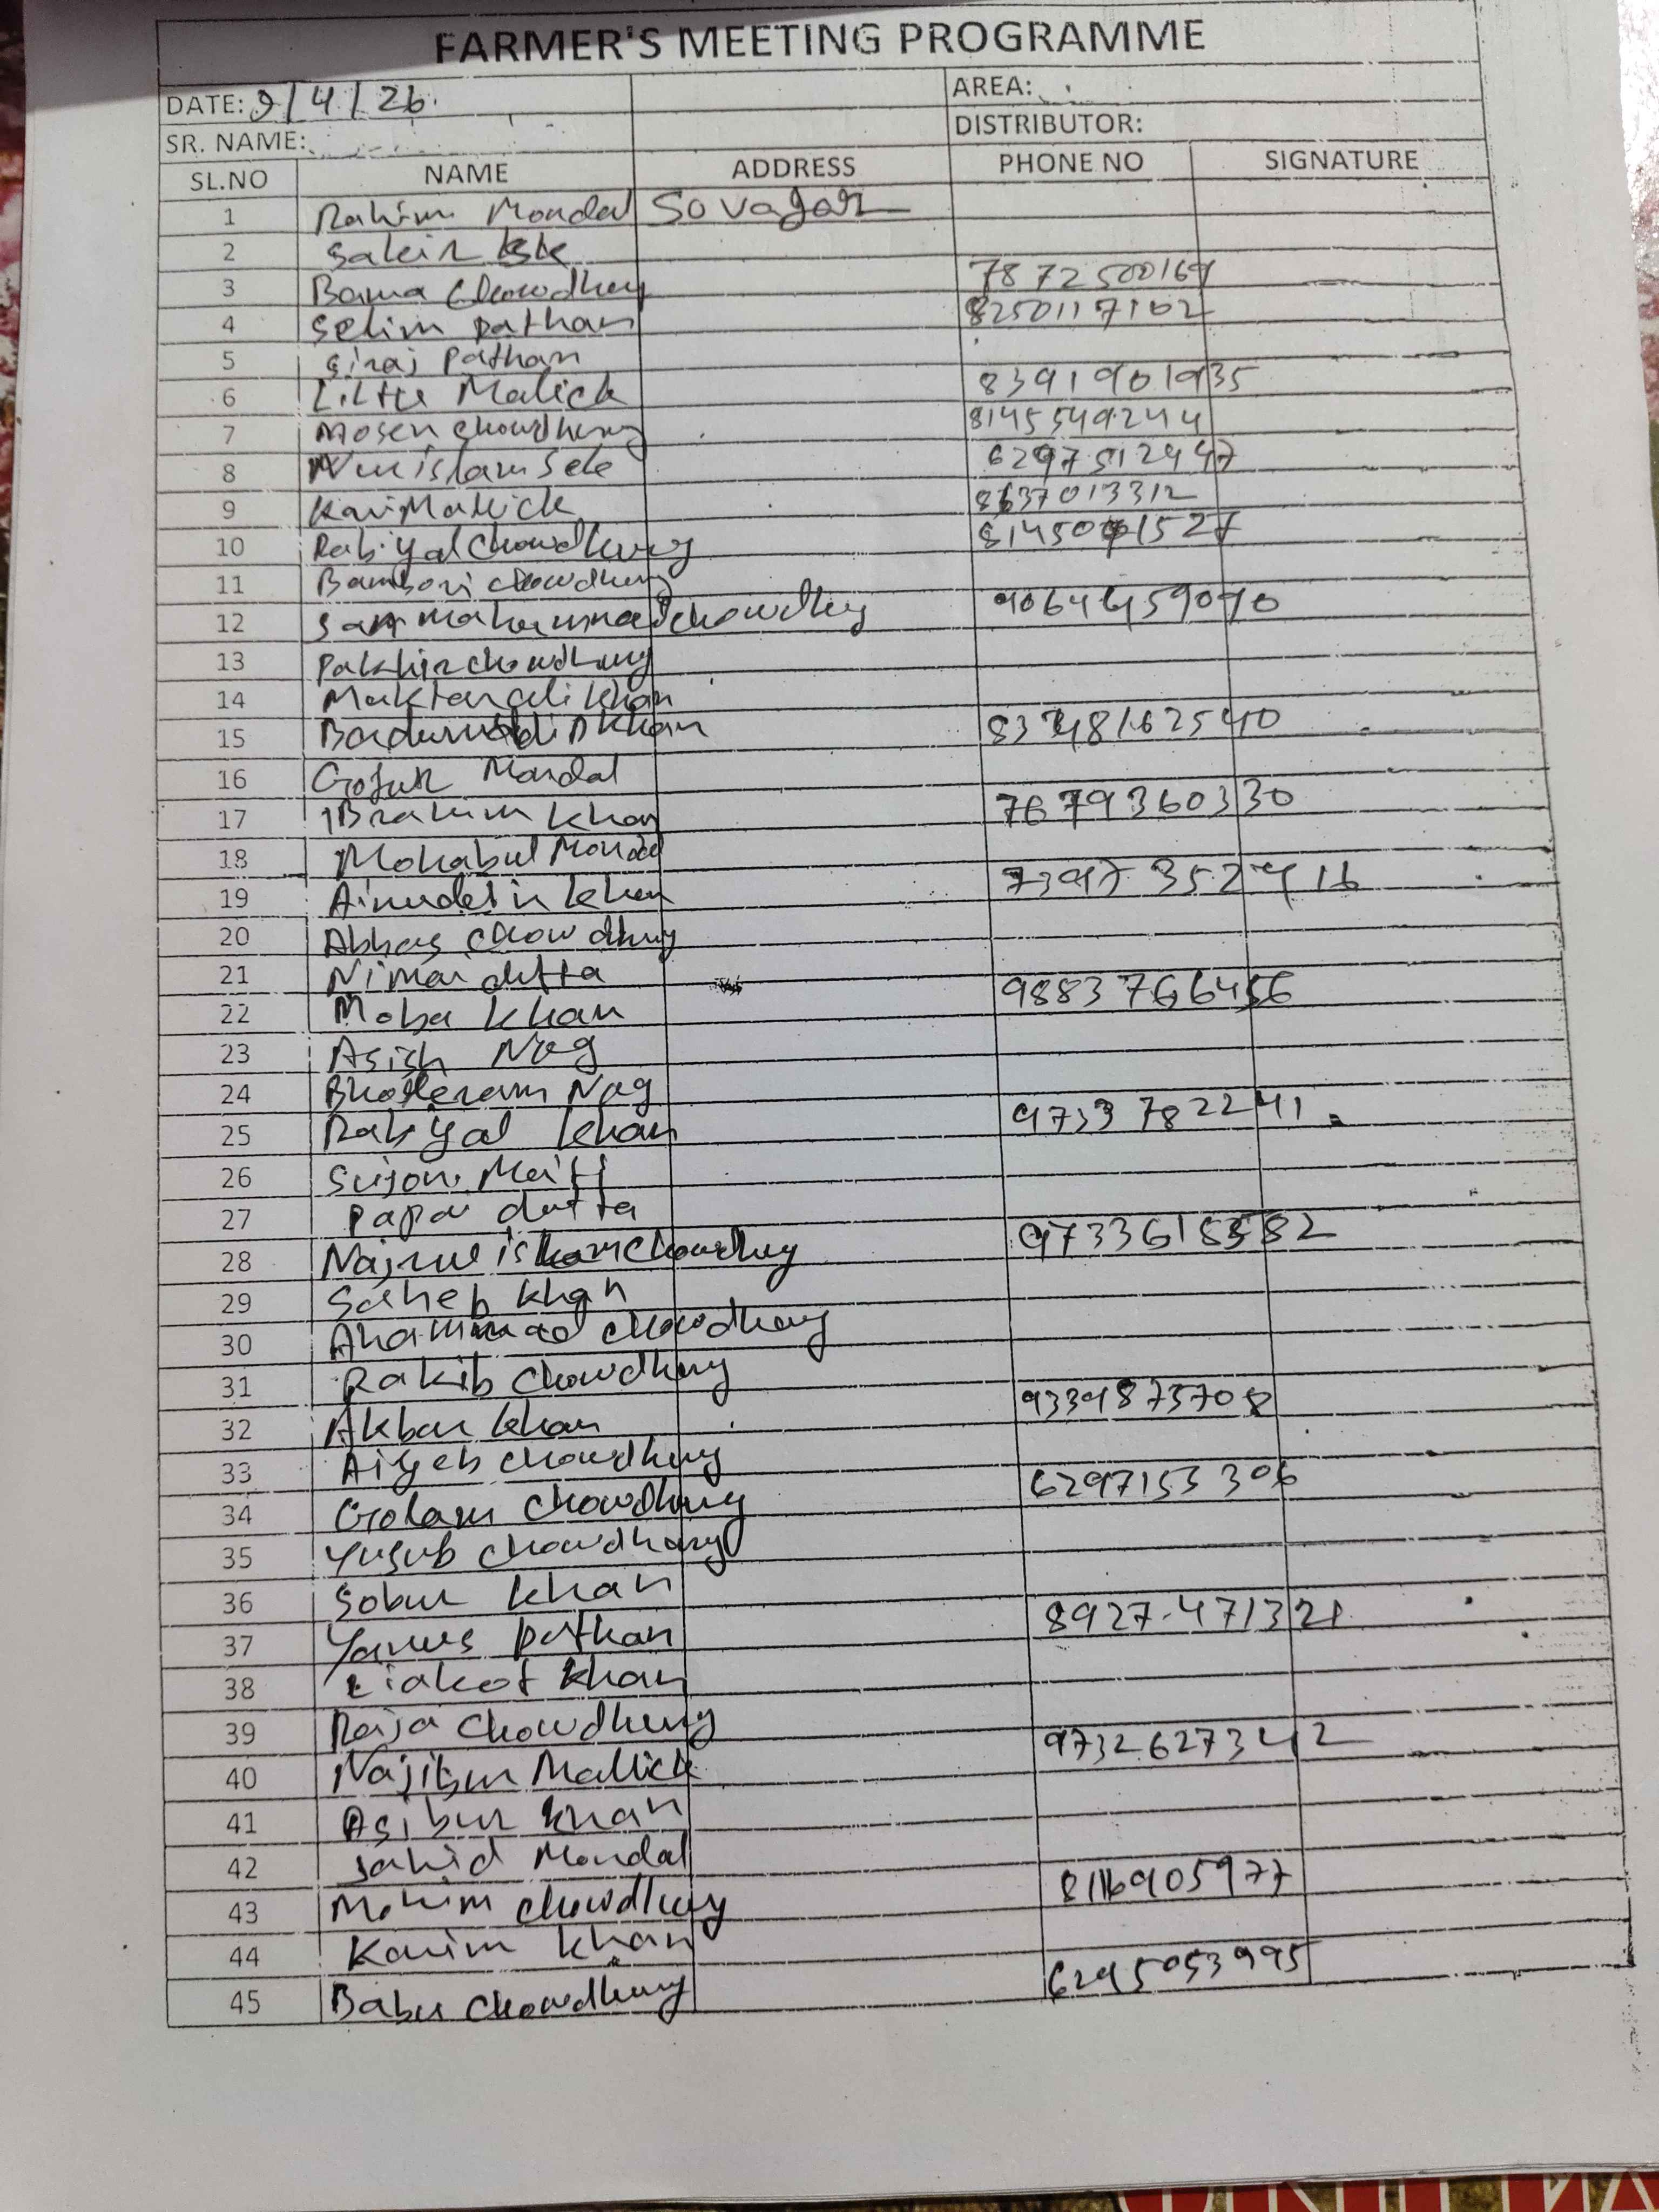 FARMER'S MEETING PROGRAMME
DATE: 9/4/26. AREA:
SR. NAME: DISTRIBUTOR:
SL.NO NAME ADDRESS PHONE NO SIGNATURE
1 Rahim Mondal Sovagar
2 Sakir
3 Bama Chowdhury 7872500169
4 Selim Pathan 8250117102
5 Siraj Pathan
6 Malick 8391901935
7 Mosen Chowdhury 8145549244
8 6297512947
9 Mallick 8637013312
10 Rabiyal Chowdhury
11 Chowdhury
12 Chowdhury
13 Chowdhury
14 Khan
15 Khan
16 Gofur Mondal
17 IBrahim Khan 7679360330
18 Mohabul Mondal
19 Khan
20 Abbas Chowdhury
21 Nimai dutta
22 Moba Khan 9883766456
23 Asish Nag
24 Nag
25 Rabiyal Khan 9733782241
26 Sujon Maiti
27 Papai dutta
28 Najrul islam Chowdhury
29 Saheb Khan
30 Ahammad Chowdhury
31 Rakib Chowdhury
32 Akbar Khan 9339873708
33 Aiyeb Chowdhury
34 Golam Chowdhury 6297153306
35 Yusub Chowdhury
36 Sobur Khan
37 Yanus Pathan 8927471321
38 Liakot Khan
39 Raja Chowdhury
40 Najibur Mallick 9732627342
41 Asibur Khan
42 Sahid Mondal
43 Mohim Chowdhury 8116905977
44 Karim Khan
45 Babu Chowdhury 6295053995